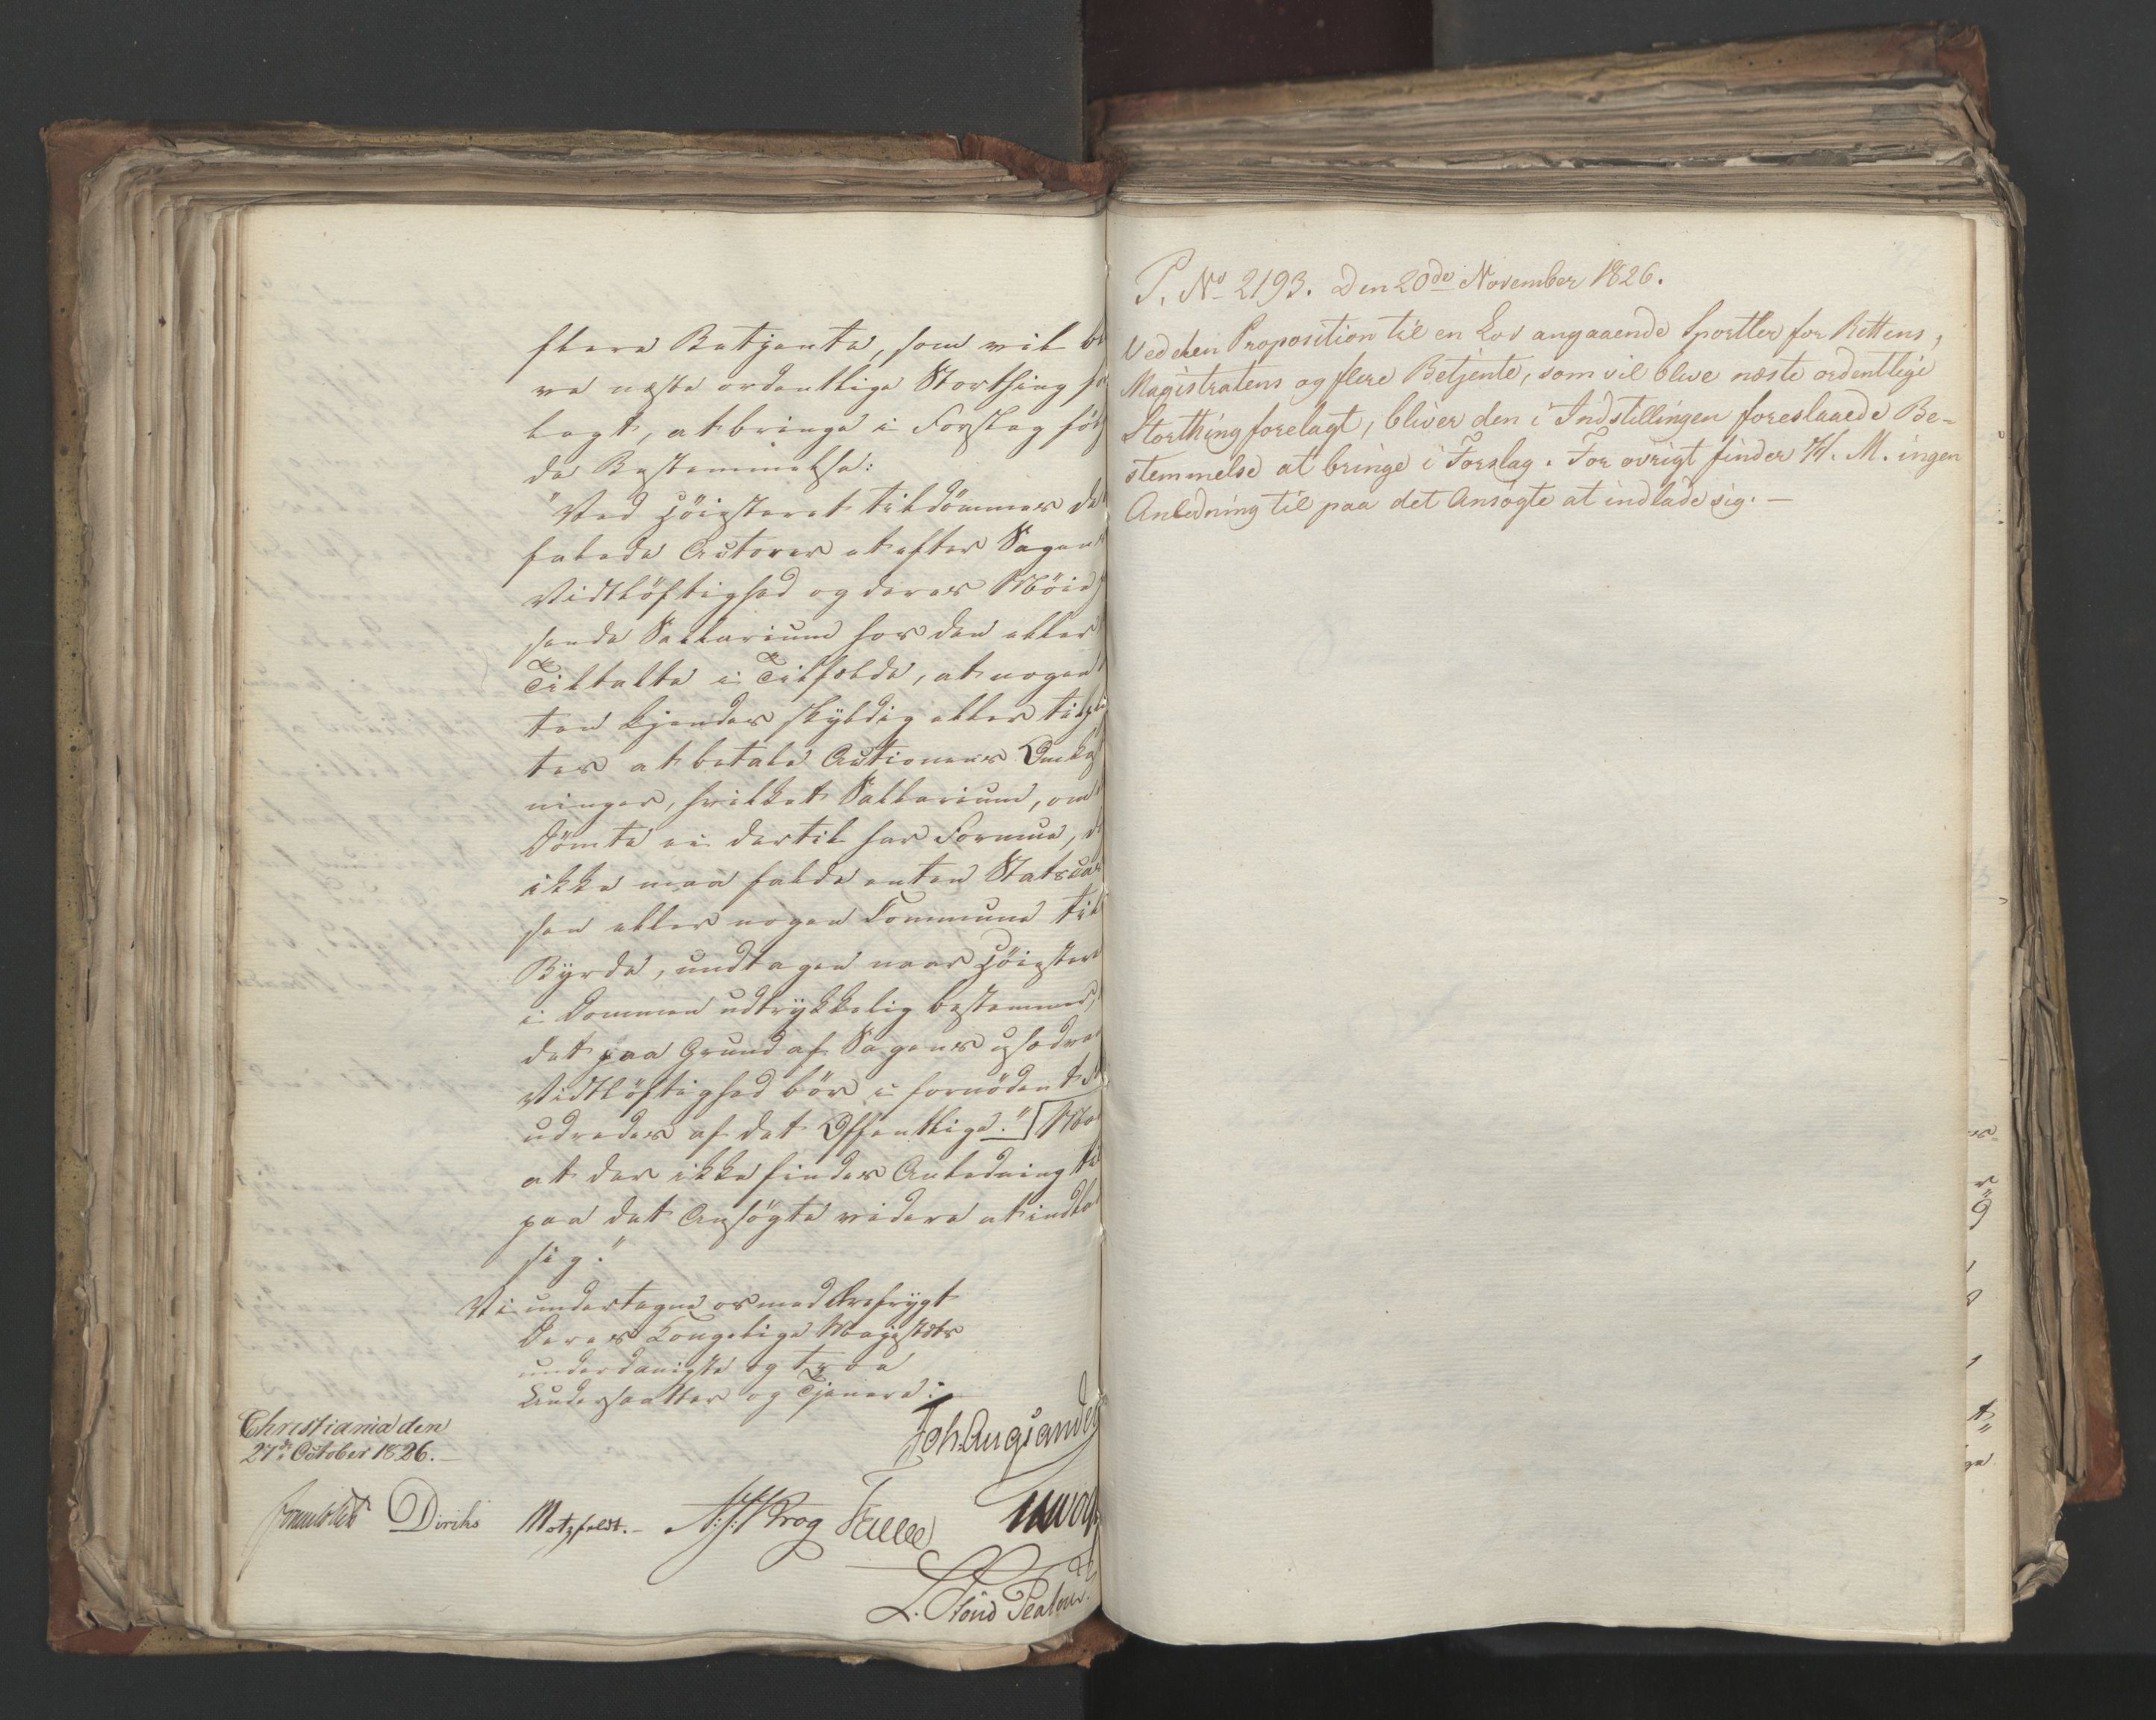 flere Betjente, som vil bl
ve næste ordentlige Storthing fo
lagt, at bringe i Forslag föl
de Bestemmelse:
"Ved Höiesteret tildömmes de
falede Actorer at efter Sagens
Vidtlöftighed og deres Möie
sende Sallarium hos den eller
Tiltalte i Tilfælde, at nogen
ten kjendes skyldig eller tilpli
tes at betale Actionens Omkost
ninger, hvilket Sallarium, om
Dömte ei dertil har Formue, d
ikke maa falde enten Statscas
sen eller nogen Commune til
Byrde, undtagen naar Höiestere
i Dommen udtrykkelig bestemmer,
det paa Grund af Sagens
Vidtlöftighed bör i fornödent
udredes af det Offentlige." Me
at der ikke findes Anledning til
paa det Ansögte videre at indla
sig."
Vi undertegne os med Ærefrygt
Deres Kongelige Majestæts
underdanigste og troe
Undersaatter og Tjenere:
Christiania den
27de October 1826.
Joh. Aug. Sande
Diriks Motzfeldt. N: J: Krog
P. No 2193. Den 20de November 1826.
Ved den Proposition til en Lov angaaende Sportler for Rettens,
Magistratens og flere Betjente, som vil blive næste ordentlige
Storthing forelagt, bliver den i Indstillingen foreslaaede Be-
stemmelse at bringe i Forslag. For övrigt finder H. M. ingen
Anledning til paa det Ansögte at indlade sig. —